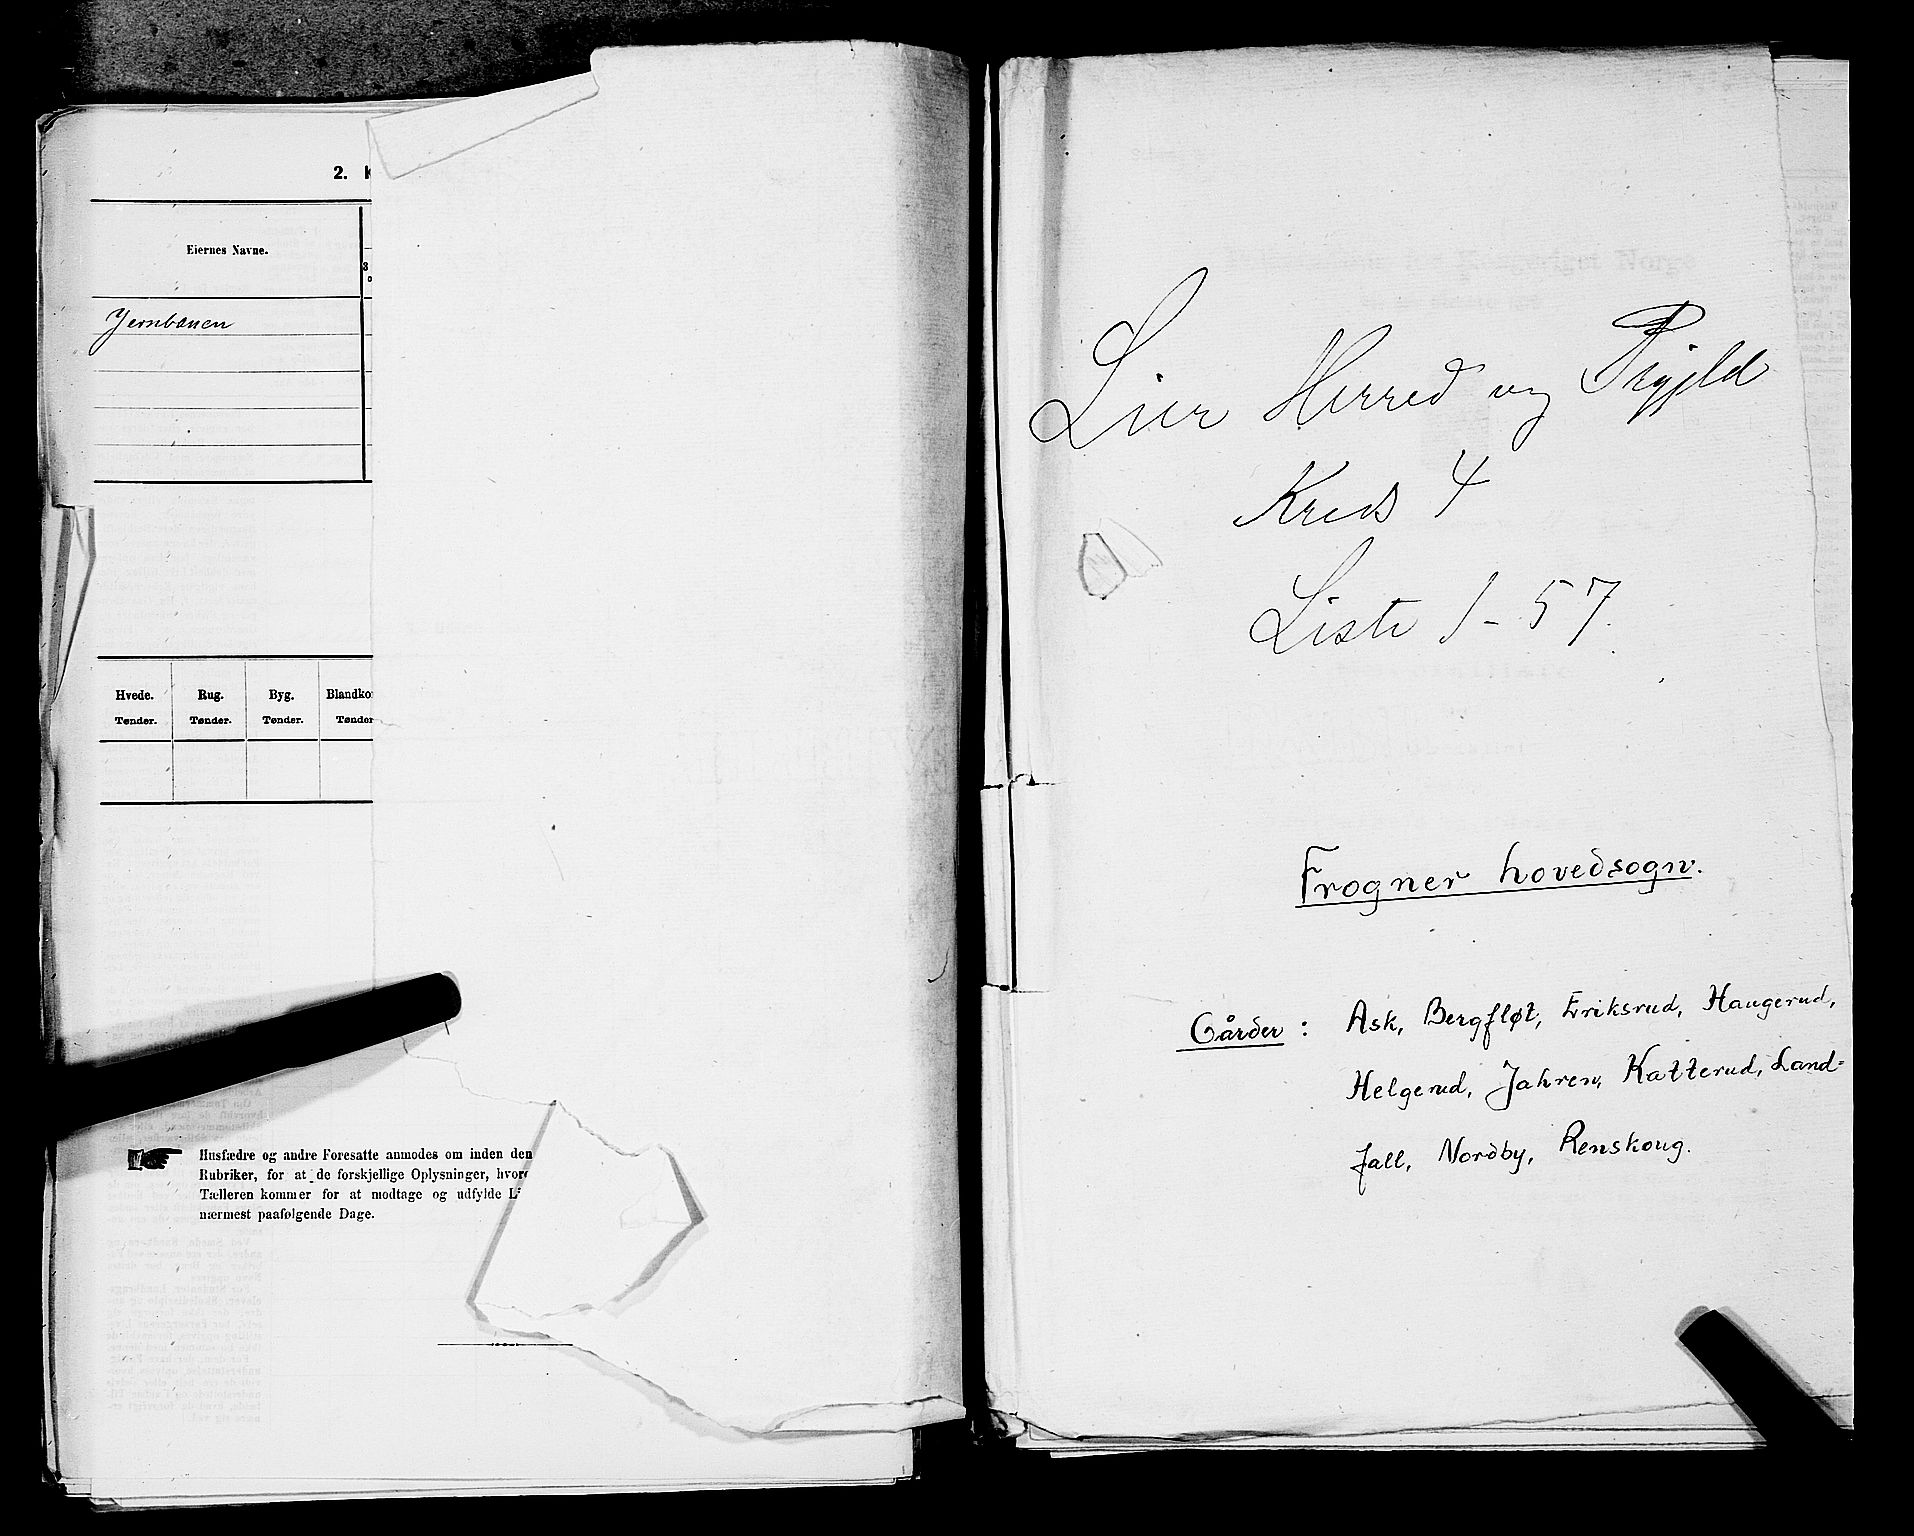 2. K
Eiernes Navne.
Jernbanen
Hvede. Rug. Byg. Blandko
Tønder. Tønder. Tønder. Tønder
Husfædre og andre Foresatte anmodes om inden den
Rubriker, for at de forskjellige Oplysninger, hvor
Tælleren kommer for at modtage og udfylde Li
nærmest paafølgende Dage.
Lier Herred og Prgjld
Kreds 4
Liste 1-57.
Frogner hovedsogn.
Gårder: Ask, Bergfløt, Eriksrud, Haugerud,
Helgerud, Jahren, Katterud, Land=
fall, Nordby, Renskoug.